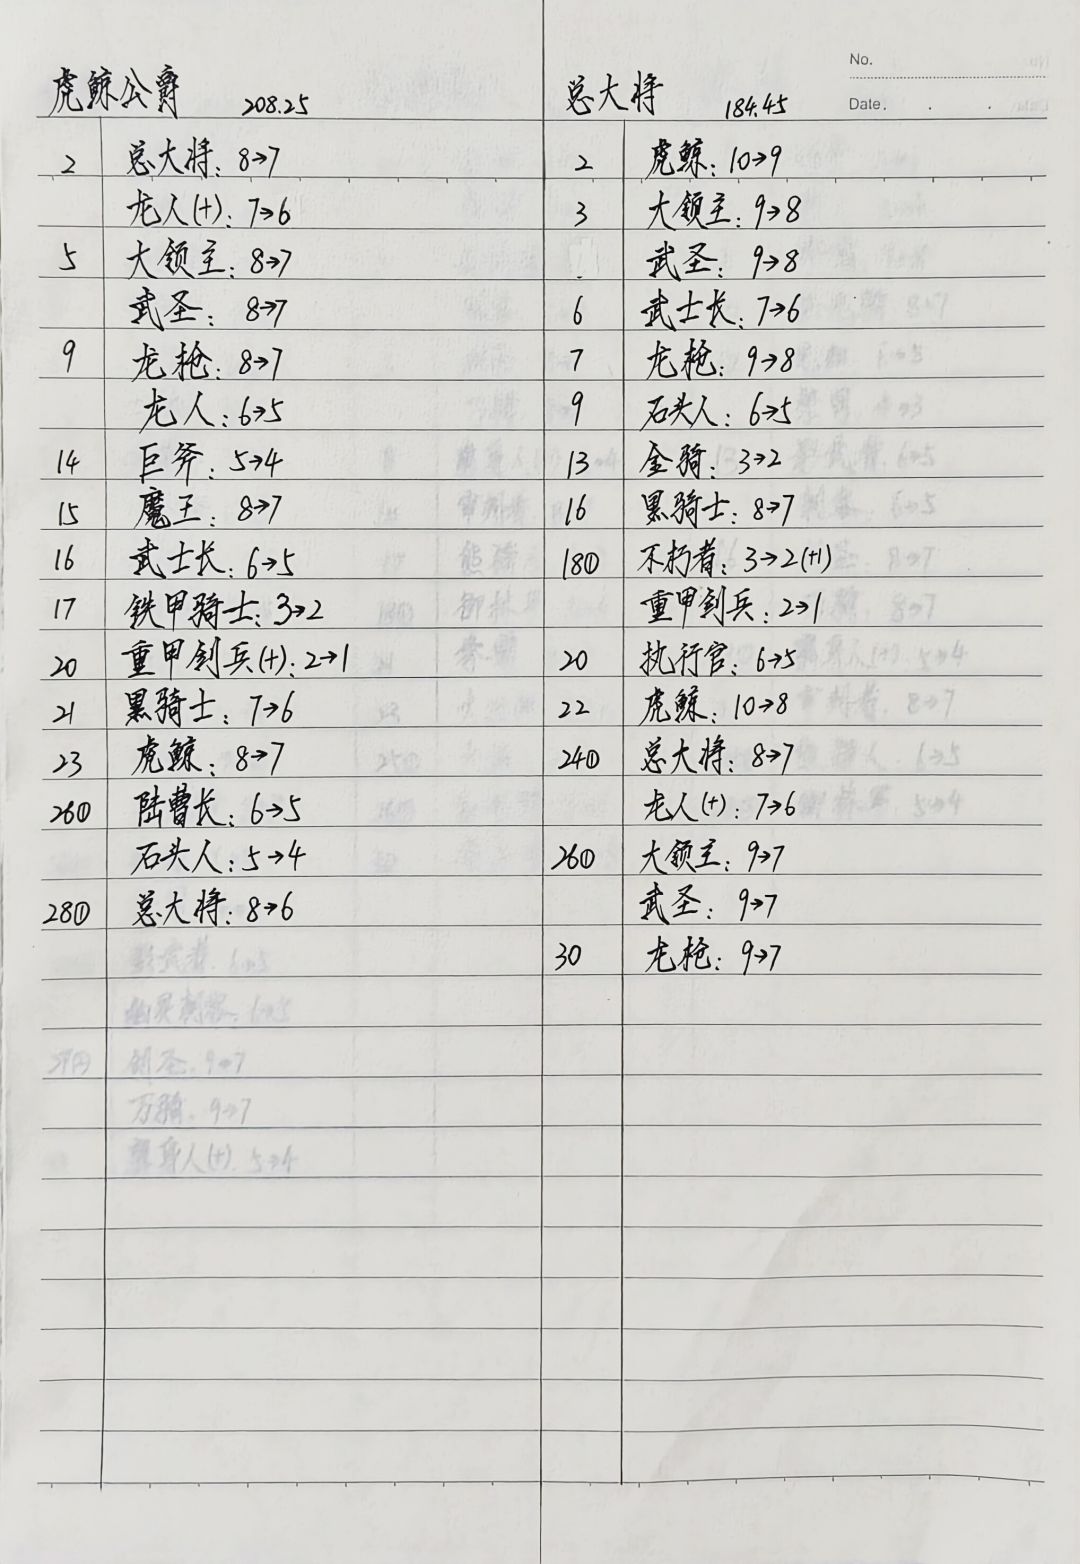 No.
Date.
虎鲸公爵 208.25
2 总大将：8→7
龙人(+)：7→6
5 大领主：8→7
武圣：8→7
9 龙枪：8→7
龙人：6→5
14 巨斧：5→4
15 魔王：8→7
16 武士长：6→5
17 铁甲骑士：3→2
20 重甲剑兵(+)：2→1
21 黑骑士：7→6
23 虎鲸：8→7
26① 陆曹长：6→5
石头人：5→4
28① 总大将：8→6
总大将 184.45
2 虎鲸：10→9
3 大领主：9→8
武圣：9→8
6 武士长：7→6
7 龙枪：9→8
9 石头人：6→5
13 金骑：3→2
16 黑骑士：8→7
18① 不朽者：3→2(+1)
重甲剑兵：2→1
20 执行官：6→5
22 虎鲸：10→8
24① 总大将：8→7
龙人(+)：7→6
26① 大领主：9→7
武圣：9→7
30 龙枪：9→7